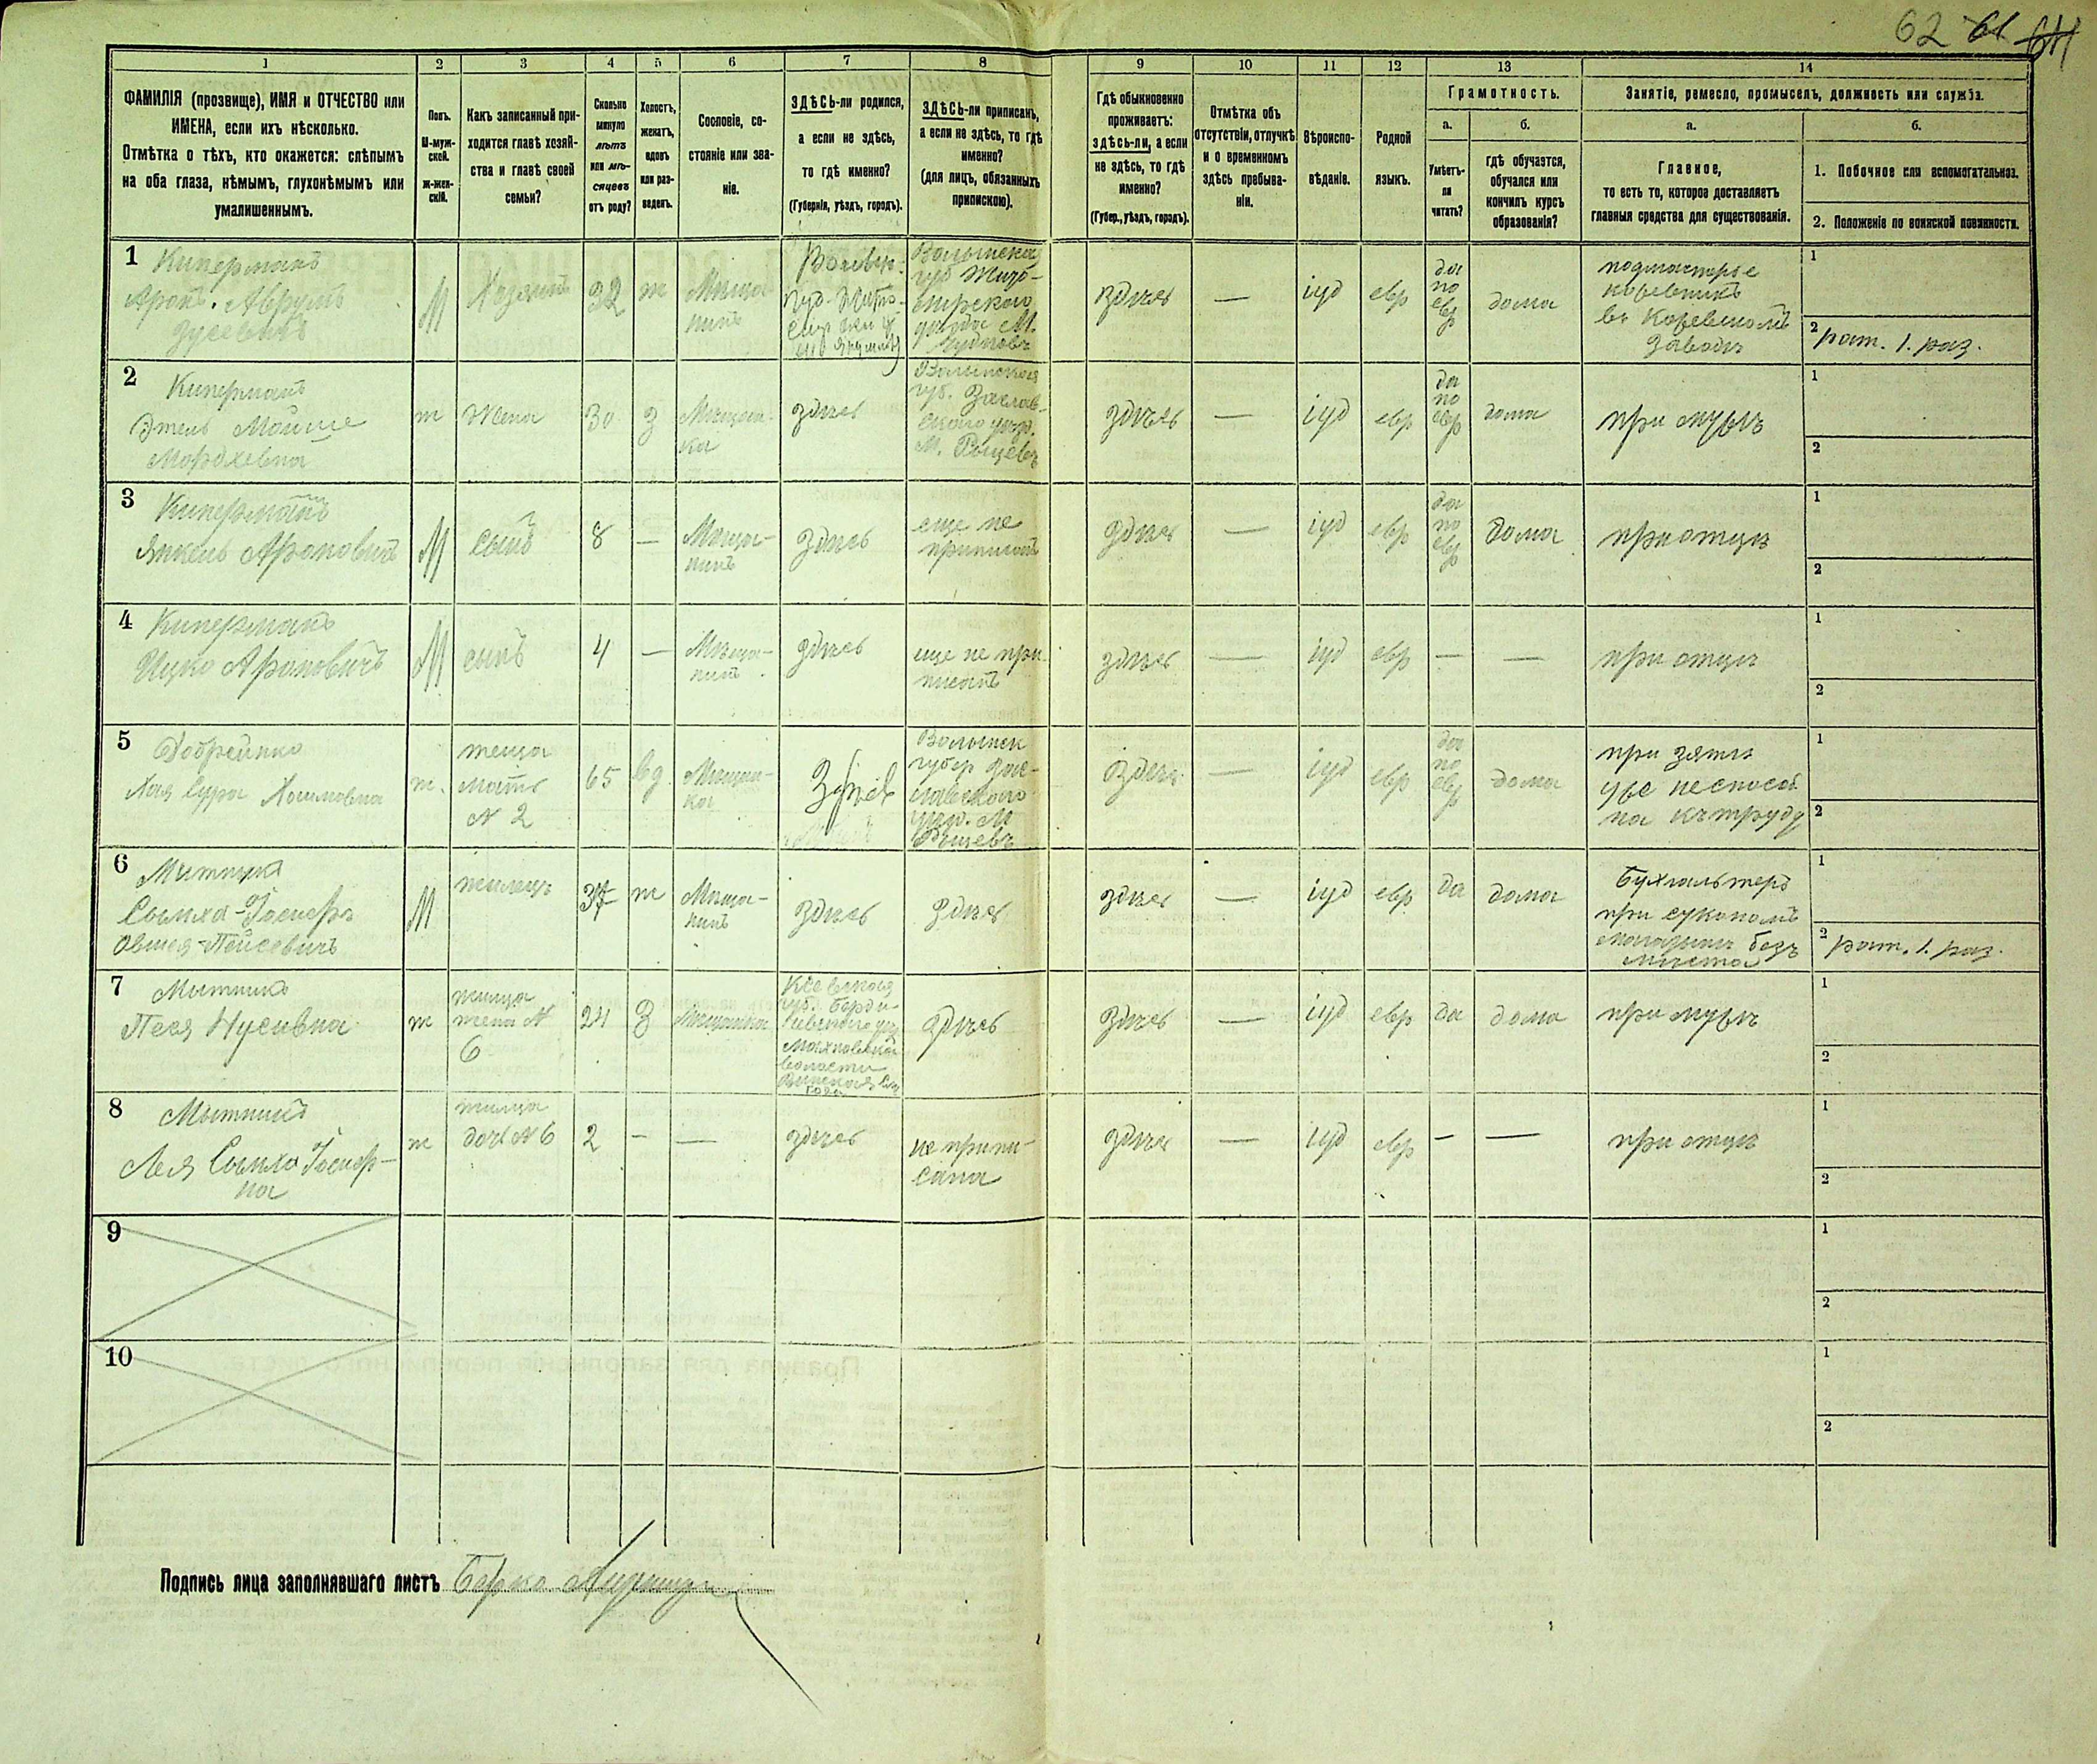 62 61 61
1 2 3 4 5 6 7 8 9 10 11 12 13 14
ФАМИЛІЯ (прозвище), ИМЯ и ОТЧЕСТВО или
ИМЕНА, если ихъ нѣсколько.
Отмѣтка о тѣхъ, кто окажется: слѣпымъ
на оба глаза, нѣмымъ, глухонѣмымъ или
умалишеннымъ.
Полъ.
М-муж-
ской.
ж-жен-
скій.
Какъ записанный при-
ходится главѣ хозяй-
ства и главѣ своей
семьи?
Сколько
минуло
лѣтъ
или мѣ-
сяцевъ
отъ роду?
Холостъ,
женатъ,
вдовъ
или раз-
веденъ.
Сословіе, со-
стояніе или зва-
ніе.
ЗДѢСЬ-ли родился,
а если не здѣсь,
то гдѣ именно?
(Губернія, уѣздъ, городъ).
ЗДѢСЬ-ли приписанъ,
а если не здѣсь, то гдѣ
именно?
(для лицъ, обязанныхъ
припискою).
Гдѣ обыкновенно
проживаетъ:
здѣсь-ли, а если
не здѣсь, то гдѣ
именно?
(Губер., уѣздъ, городъ).
Отмѣтка объ
отсутствіи, отлучкѣ
и о временномъ
здѣсь пребыва-
ніи.
Вѣроиспо-
вѣданіе.
Родной
языкъ.
Грамотность.
а.
Умѣетъ-
ли
читать?
б.
гдѣ обучается,
обучался или
кончилъ курсъ
образованія?
Занятіе, ремесло, промыселъ, должность или служба.
а.
Главное,
то есть то, которое доставляетъ
главныя средства для существованія.
б.
1. Побочное или вспомогательное.
2. Положеніе по воинской повинности.
1
Киперманъ
Аронъ-Аврумъ
Зусевичъ
М
Хозяинъ
32
ж
Мѣща-
нинъ
Волынская
губ Жито-
мирскаго
уѣзда М.
Чудновъ
здѣсь
—
іуд
евр
да
по
евр
дома
подмастерье
въ
заводѣ
1
2 рат. 1. раз.
2
Киперманъ
Этель Мойше
Мордхевна
ж
жена
30
з
Мѣщан-
ка
здѣсь
Волынская
губ. Заслав-
скаго уѣзд.
М.
здѣсь
—
іуд
евр
да
по
евр
дома
при мужѣ
1
2
3
Киперманъ
Янкель Ароновичъ
М
сынъ
8
—
Мѣща-
нинъ
здѣсь
еще не
приписанъ
здѣсь
—
іуд
евр
да
по
евр
дома
при отцѣ
1
2
4
Киперманъ
Ицко Ароновичъ
М
сынъ
4
—
Мѣща-
нинъ
здѣсь
еще не при
писанъ
здѣсь
—
іуд
евр
—
—
при отцѣ
1
2
5
Хая Сура Хаимовна
ж.
теща
мать
N 2
65
вд.
Мѣщан-
ка
здѣсь
Волынск
губер Зас-
лавскаго
уѣзд. М
здѣсь
—
іуд
евр
да
по
евр
дома
при зятѣ
уже неспособ
на къ труду
1
2
6
Мытникъ
Овшея-Пейсевичъ
М
жилецъ
ж
Мѣща-
нинъ
здѣсь
здѣсь
здѣсь
—
іуд
евр
да
дома
Бухгалтеръ
при суконномъ
магазинѣ безъ
мѣста
1
2 рат. 1. раз.
7
Мытникъ
Песя Нусивна
ж
жилица
жена N
6
24
З
Мѣщанка
Кіевская
губ. Берди-
чевскаго уѣз
Махновской
волости
здѣсь
здѣсь
—
іуд
евр
да
дома
при мужѣ
1
2
8
Мытникъ
Лея
на
ж
жилица
доч N 6
2
—
—
здѣсь
не припи-
сана
здѣсь
—
іуд
евр
—
—
при отцѣ
1
2
9
1
2
10
1
2
Подпись лица заполнявшаго листъ Берко